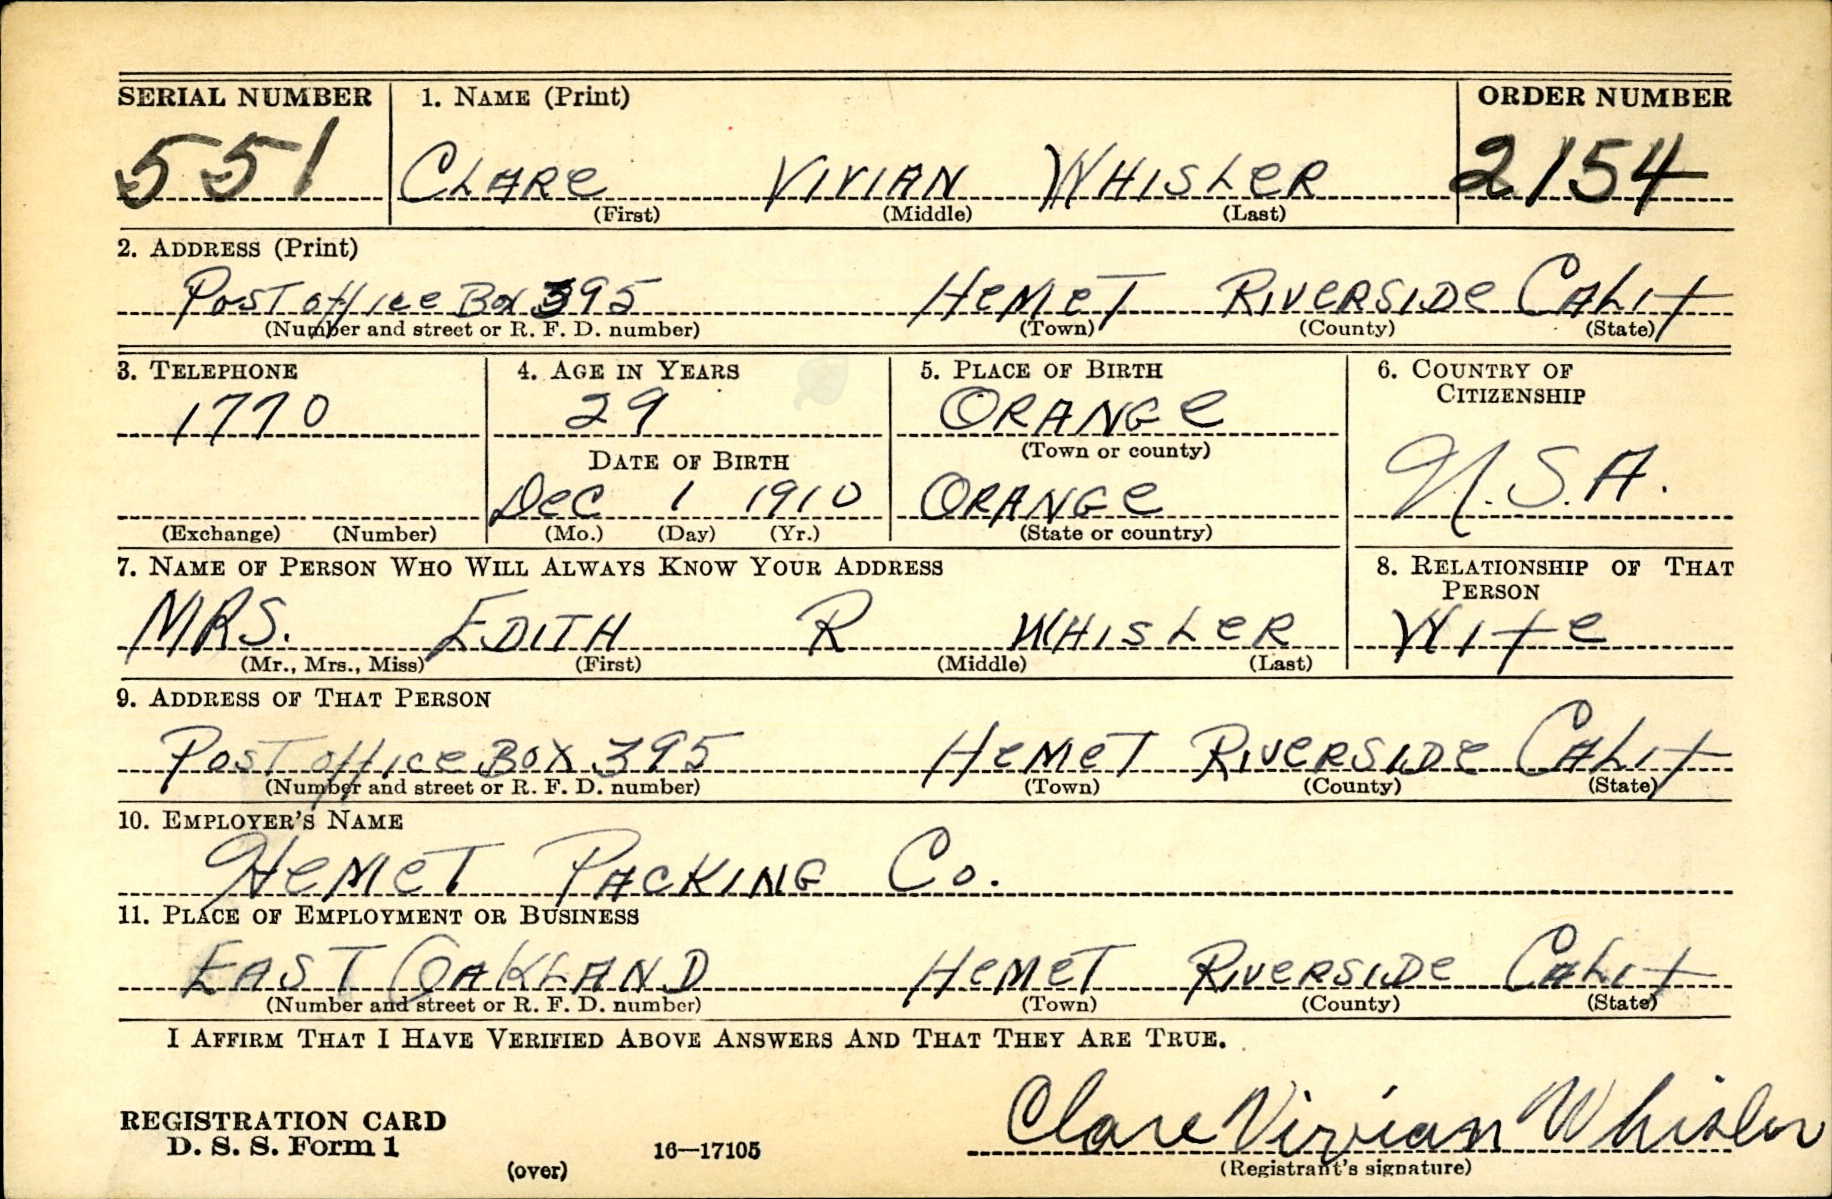 SERIAL NUMBER 1. NAME (Print) ORDER NUMBER
551 CLARE VIVIAN WHISLER 2154
(First) (Middle) (Last)
2. ADDRESS (Print)
Post office Box 395 HEMET RIVERSIDE CALIF
(Number and street or R. F. D. number) (Town) (County) (State)
3. TELEPHONE 4. AGE IN YEARS 5. PLACE OF BIRTH 6. COUNTRY OF
CITIZENSHIP
1770 29 ORANGE
(Town or county)
DATE OF BIRTH
U.S.A.
DEC 1 1910 ORANGE
(Exchange) (Number) (Mo.) (Day) (Yr.) (State or country)
7. NAME OF PERSON WHO WILL ALWAYS KNOW YOUR ADDRESS 8. RELATIONSHIP OF THAT
PERSON
MRS. EDITH R WHISLER WIFE
(Mr., Mrs., Miss) (First) (Middle) (Last)
9. ADDRESS OF THAT PERSON
Post office Box 395 HEMET RIVERSIDE CALIF
(Number and street or R. F. D. number) (Town) (County) (State)
10. EMPLOYER'S NAME
HEMET PACKING Co.
11. PLACE OF EMPLOYMENT OR BUSINESS
EAST OAKLAND HEMET RIVERSIDE CALIF
(Number and street or R. F. D. number) (Town) (County) (State)
I AFFIRM THAT I HAVE VERIFIED ABOVE ANSWERS AND THAT THEY ARE TRUE.
Clare Vivian Whisler
REGISTRATION CARD
D. S. S. Form 1 16—17105
(over) (Registrant's signature)